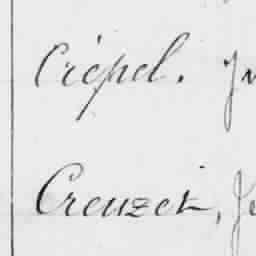 Crépel.
Creuzet,